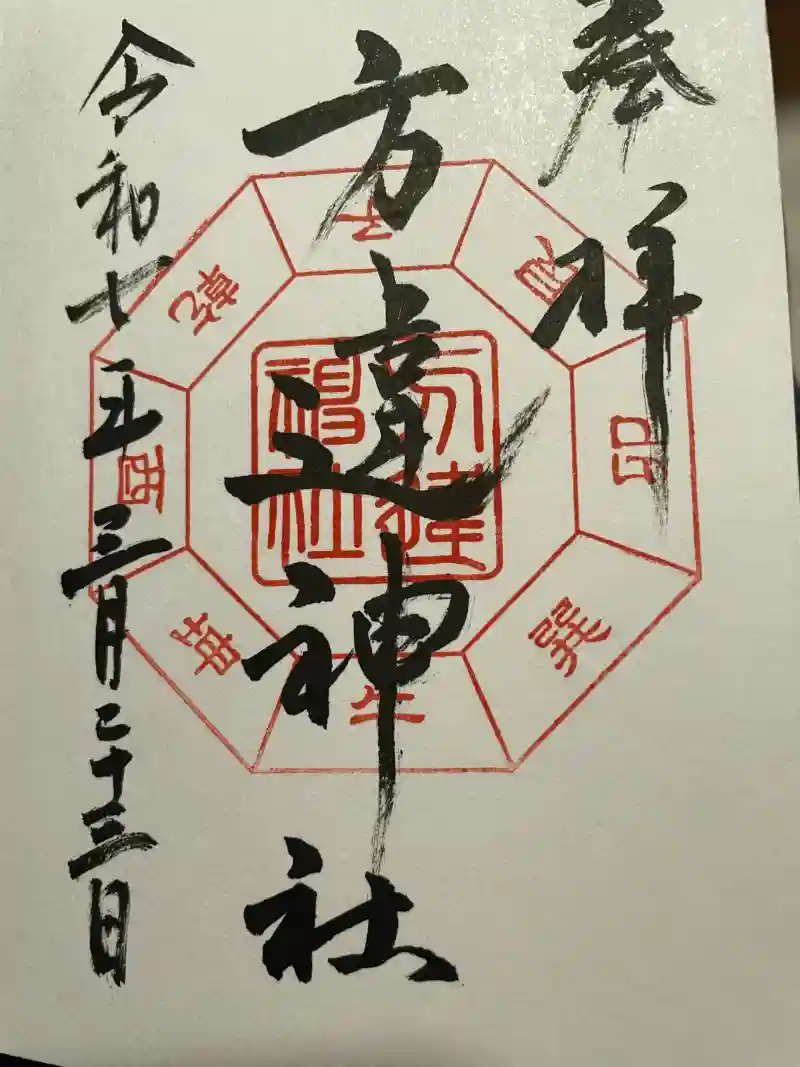 奉拝
方違神社
令和七年三月二十三日
方違
神社
艮
卯
巽
午
坤
酉
乾